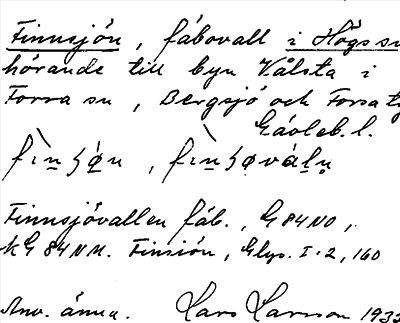 Finnsjön, fäbovall i Högs sn
hörande till byn Vålsta i
Forsa sn, Bergsjö och Forsa t
Gävleb. l.
Finnsjövallen fäb., G 84 NO,
kG 84 NM. Finsión, Glys. I:2, 160
Anv. ännu. Lars Larson 1935